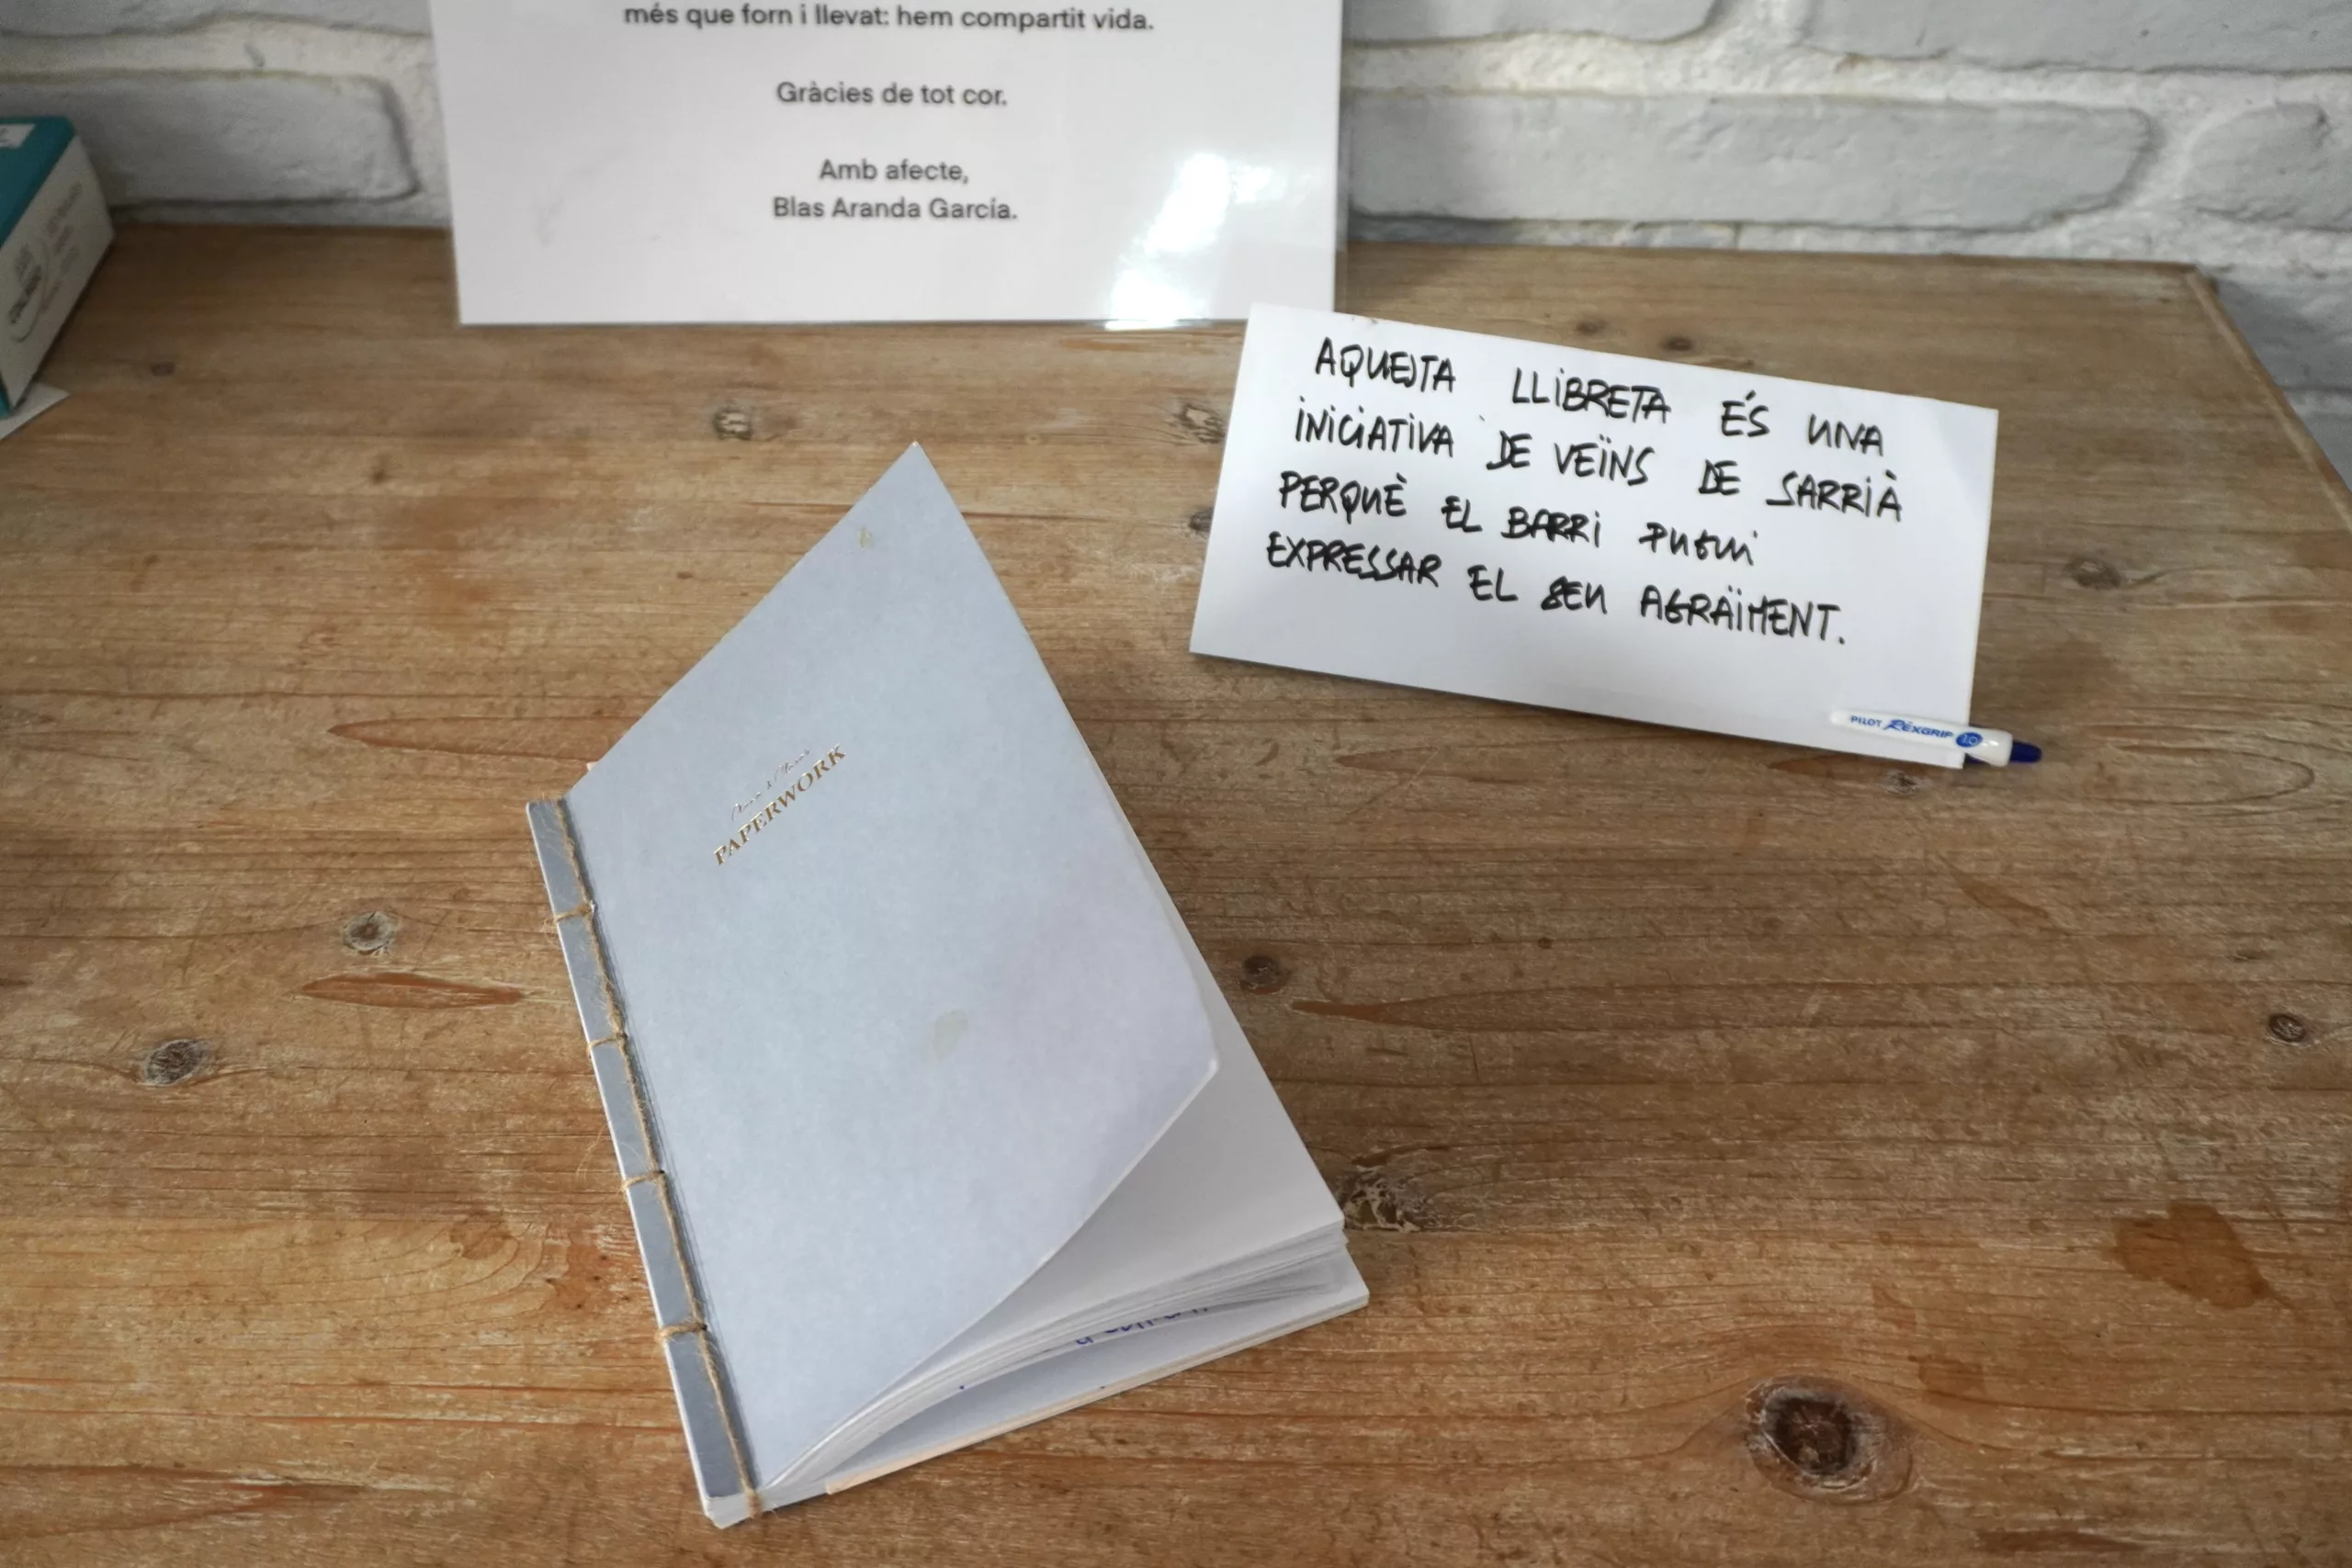 més que forn i llevat: hem compartit vida.
Gràcies de tot cor.
Amb afecte,
Blas Aranda García.
AQUESTA LLIBRETA ÉS UNA
INICIATIVA DE VEÏNS DE SARRIÀ
PERQUÈ EL BARRI PUGUI
EXPRESSAR EL SEU AGRAÏMENT.
PILOT RÉXGRIP 1.0
PAPERWORK